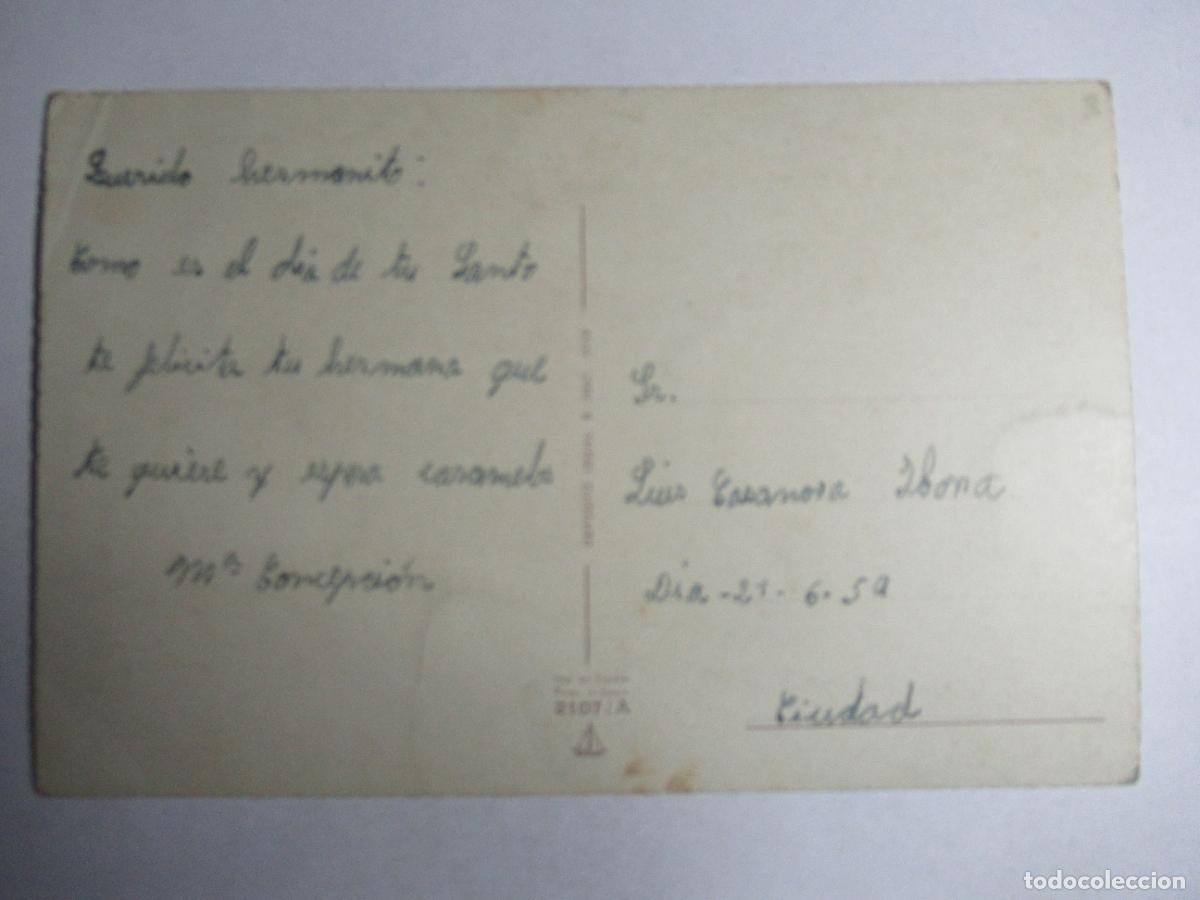 Querido hermanito:
Como es el dia de tu Santo
te felicita tu hermana que
te quiere y espera caramelos
Mª Concepción
Sr.
Luis Casanova Ibona
Dia - 21 - 6 - 59
Ciudad
2107/A
todocoleccion